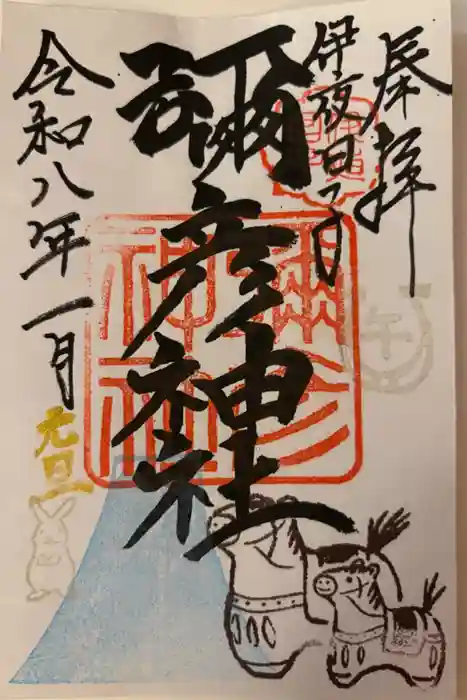 奉拝
伊夜日子
彌彦神社
令和八年一月
元旦
彌彦
神社
午